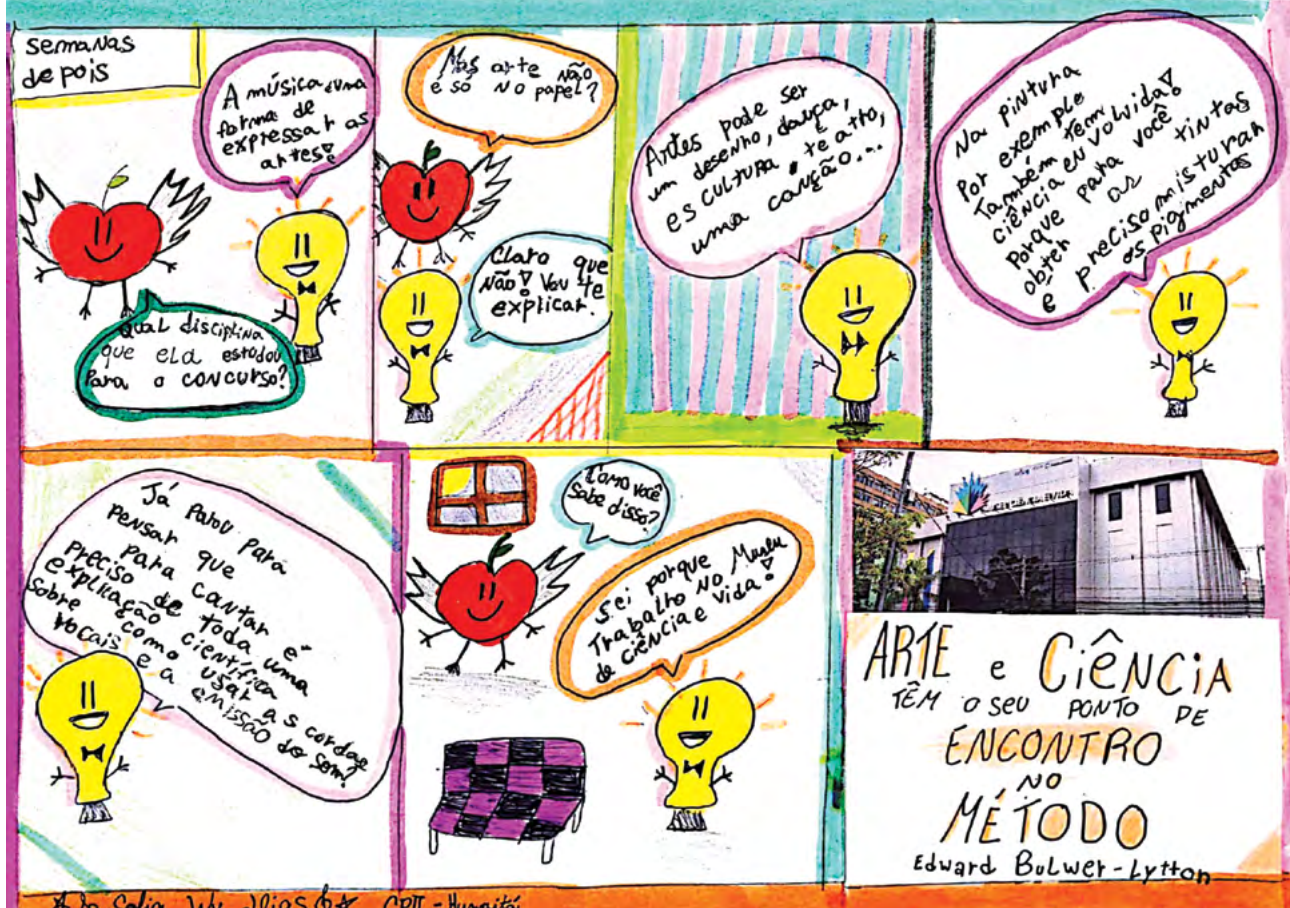 semanas
depois
A música é uma
forma de
expressar as
artes!
Qual disciplina
que ela estudou
Para o concurso?
Mas arte não
é só no papel?
Claro que
não! Vou te
explicar.
Artes pode ser
um desenho, dança,
escultura, teatro,
uma canção...
Na pintura
Por exemplo
Também tem
ciência envolvida!
Porque para você
obter as tintas
é preciso misturar
os pigmentos
Já parou para
pensar que
para cantar é
preciso de toda uma
explicação científica
sobre como usar as cordas
vocais e a emissão do som?
Como você
sabe disso?
Sei porque
Trabalho no Museu
de Ciência e Vida!
ARTE e CiêNCiA
TÊM o seu PONTO DE
ENCONTRO
NO
MÉTODO
Edward Bulwer-Lytton
CPII - Humaitá